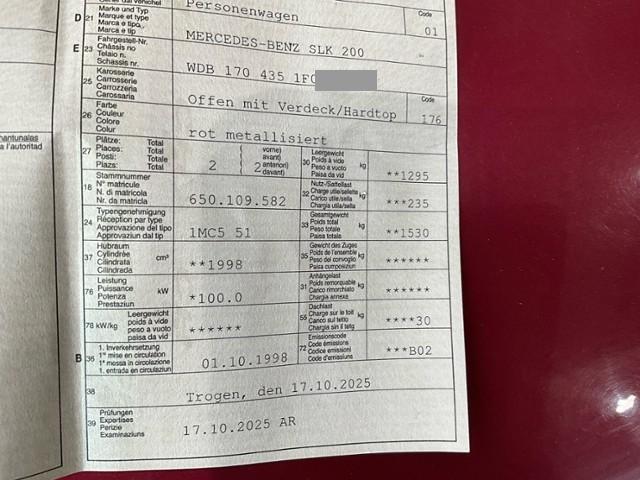 Marke und Typ
Marque et type
Marca e tipo
Marca e tip
D 21
Personenwagen
Code
01
Fahrgestell-Nr.
Châssis no
Telaio n.
Schassis nr.
E 23
MERCEDES-BENZ SLK 200
Karosserie
Carrosserie
Carrozzeria
Carossaria
25
WDB 170 435 1F
Farbe
Couleur
Colore
Colur
26
Offen mit Verdeck/Hardtop
Code
176
rot metallisiert
Plätze: Total
Places: Total
Posti: Totale
Plazs: Total
27
2
vorne)
avant)
anteriori)
davant)
2
Leergewicht
Poids à vide
Peso a vuoto
Paisa da vid
30 kg
**1295
Stammnummer
N° matricule
N. di matricola
Nr. da matricla
18
650.109.582
Nutz-/Sattellast
Charge utile/sellette
Carico utile/sella
Chargia utila/sella
32 kg
***235
Typengenehmigung
Réception par type
Approvazione del tipo
Approvaziun dal tip
24
1MC5 51
Gesamtgewicht
Poids total
Peso totale
Paisa totala
33 kg
**1530
Hubraum
Cylindrée
Cilindrata
Cilindrada
37 cm³
**1998
Gewicht des Zuges
Poids de l'ensemble
Peso del convoglio
Paisa cumposiziun
35 kg
******
Leistung
Puissance
Potenza
Prestaziun
76 kW
*100.0
Anhängelast
Poids remorquable
Carico rimorchiato
Chargia annexa
31 kg
******
78 kW/kg
Leergewicht
poids à vide
peso a vuoto
paisa da vid
******
Dachlast
Charge sur le toit
Carico sul tetto
Chargia sin il tetg
55 kg
****30
1. Inverkehrsetzung
1re mise en circulation
1a messa in circolazione
1. entrada en circulaziun
B 36
01.10.1998
Emissionscode
Code émissions
Codice emissioni
Code d'emissiuns
72
***B02
38
Trogen, den 17.10.2025
Prüfungen
Expertises
Perizie
Examinaziuns
39
17.10.2025 AR